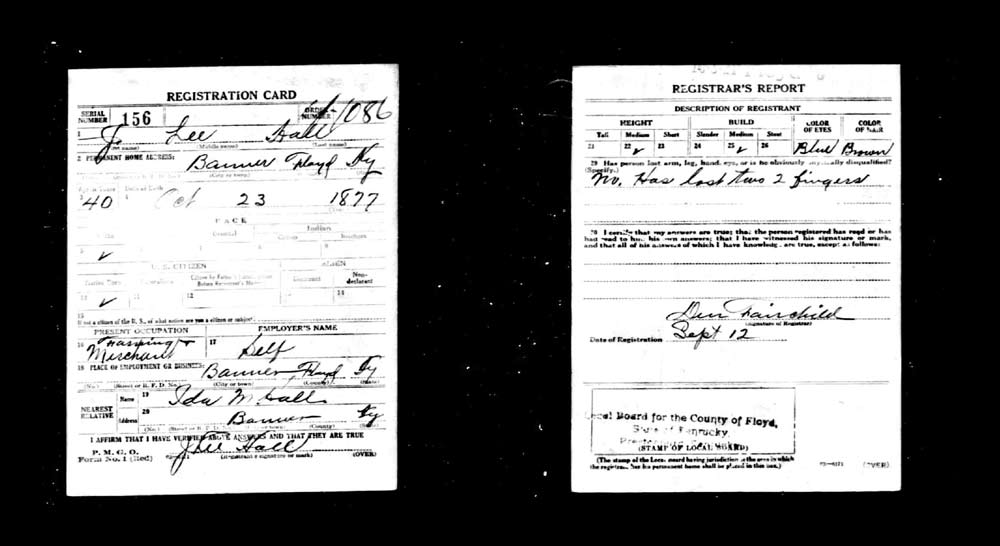 REGISTRATION CARD
SERIAL NUMBER 156 ORDER NUMBER 1086
1 J. Lee Hall
(First name) (Middle name) (Last name)
2 PERMANENT HOME ADDRESS:
Banner Floyd Ky
Age in Years Date of Birth
3 40 4 Oct 23 1877
RACE
White Oriental Indian
Citizen Noncitizen
5 ✓ 7 8 9
U. S. CITIZEN ALIEN
Native Born Citizen by Father's Naturalization Before Registrant's Majority Declarant Non-declarant
10 ✓ 11 12 14
15
If not a citizen of the U. S., of what nation are you a citizen or subject?
PRESENT OCCUPATION EMPLOYER'S NAME
16 Farming + Merchant 17 Self
18 PLACE OF EMPLOYMENT OR BUSINESS:
Banner, Floyd Ky
(No.) (Street or R. F. D. No.) (City or town) (County) (State)
NEAREST RELATIVE Name 19 Ida M. Hall
Address 20 Banner Ky
(No.) (County) (State)
I AFFIRM THAT I HAVE VERIFIED ABOVE ANSWERS AND THAT THEY ARE TRUE
P. M. G. O.
Form No. 1 (Red) J Lee Hall
(Registrant's signature or mark) (OVER)
REGISTRAR'S REPORT
DESCRIPTION OF REGISTRANT
HEIGHT BUILD COLOR OF EYES COLOR OF HAIR
Tall Medium Short Slender Medium Stout
21 22 ✓ 23 24 25 ✓ 26 Blue Brown
29 Has person lost arm, leg, hand, eye, or is he obviously physically disqualified?
(Specify.)
No. Has lost two 2 fingers
30 I certify that my answers are true; that the person registered has read or has
had read to him his own answers; that I have witnessed his signature or mark,
and that all of his answers of which I have knowledge are true, except as follows:
Fairchild
(Signature of Registrar)
Date of Registration Sept 12
Local Board for the County of Floyd,
State of Kentucky,
(STAMP OF LOCAL BOARD)
(The stamp of the Local Board having jurisdiction of the area in which
the registrant has his permanent home shall be placed in this box.)
(OVER)